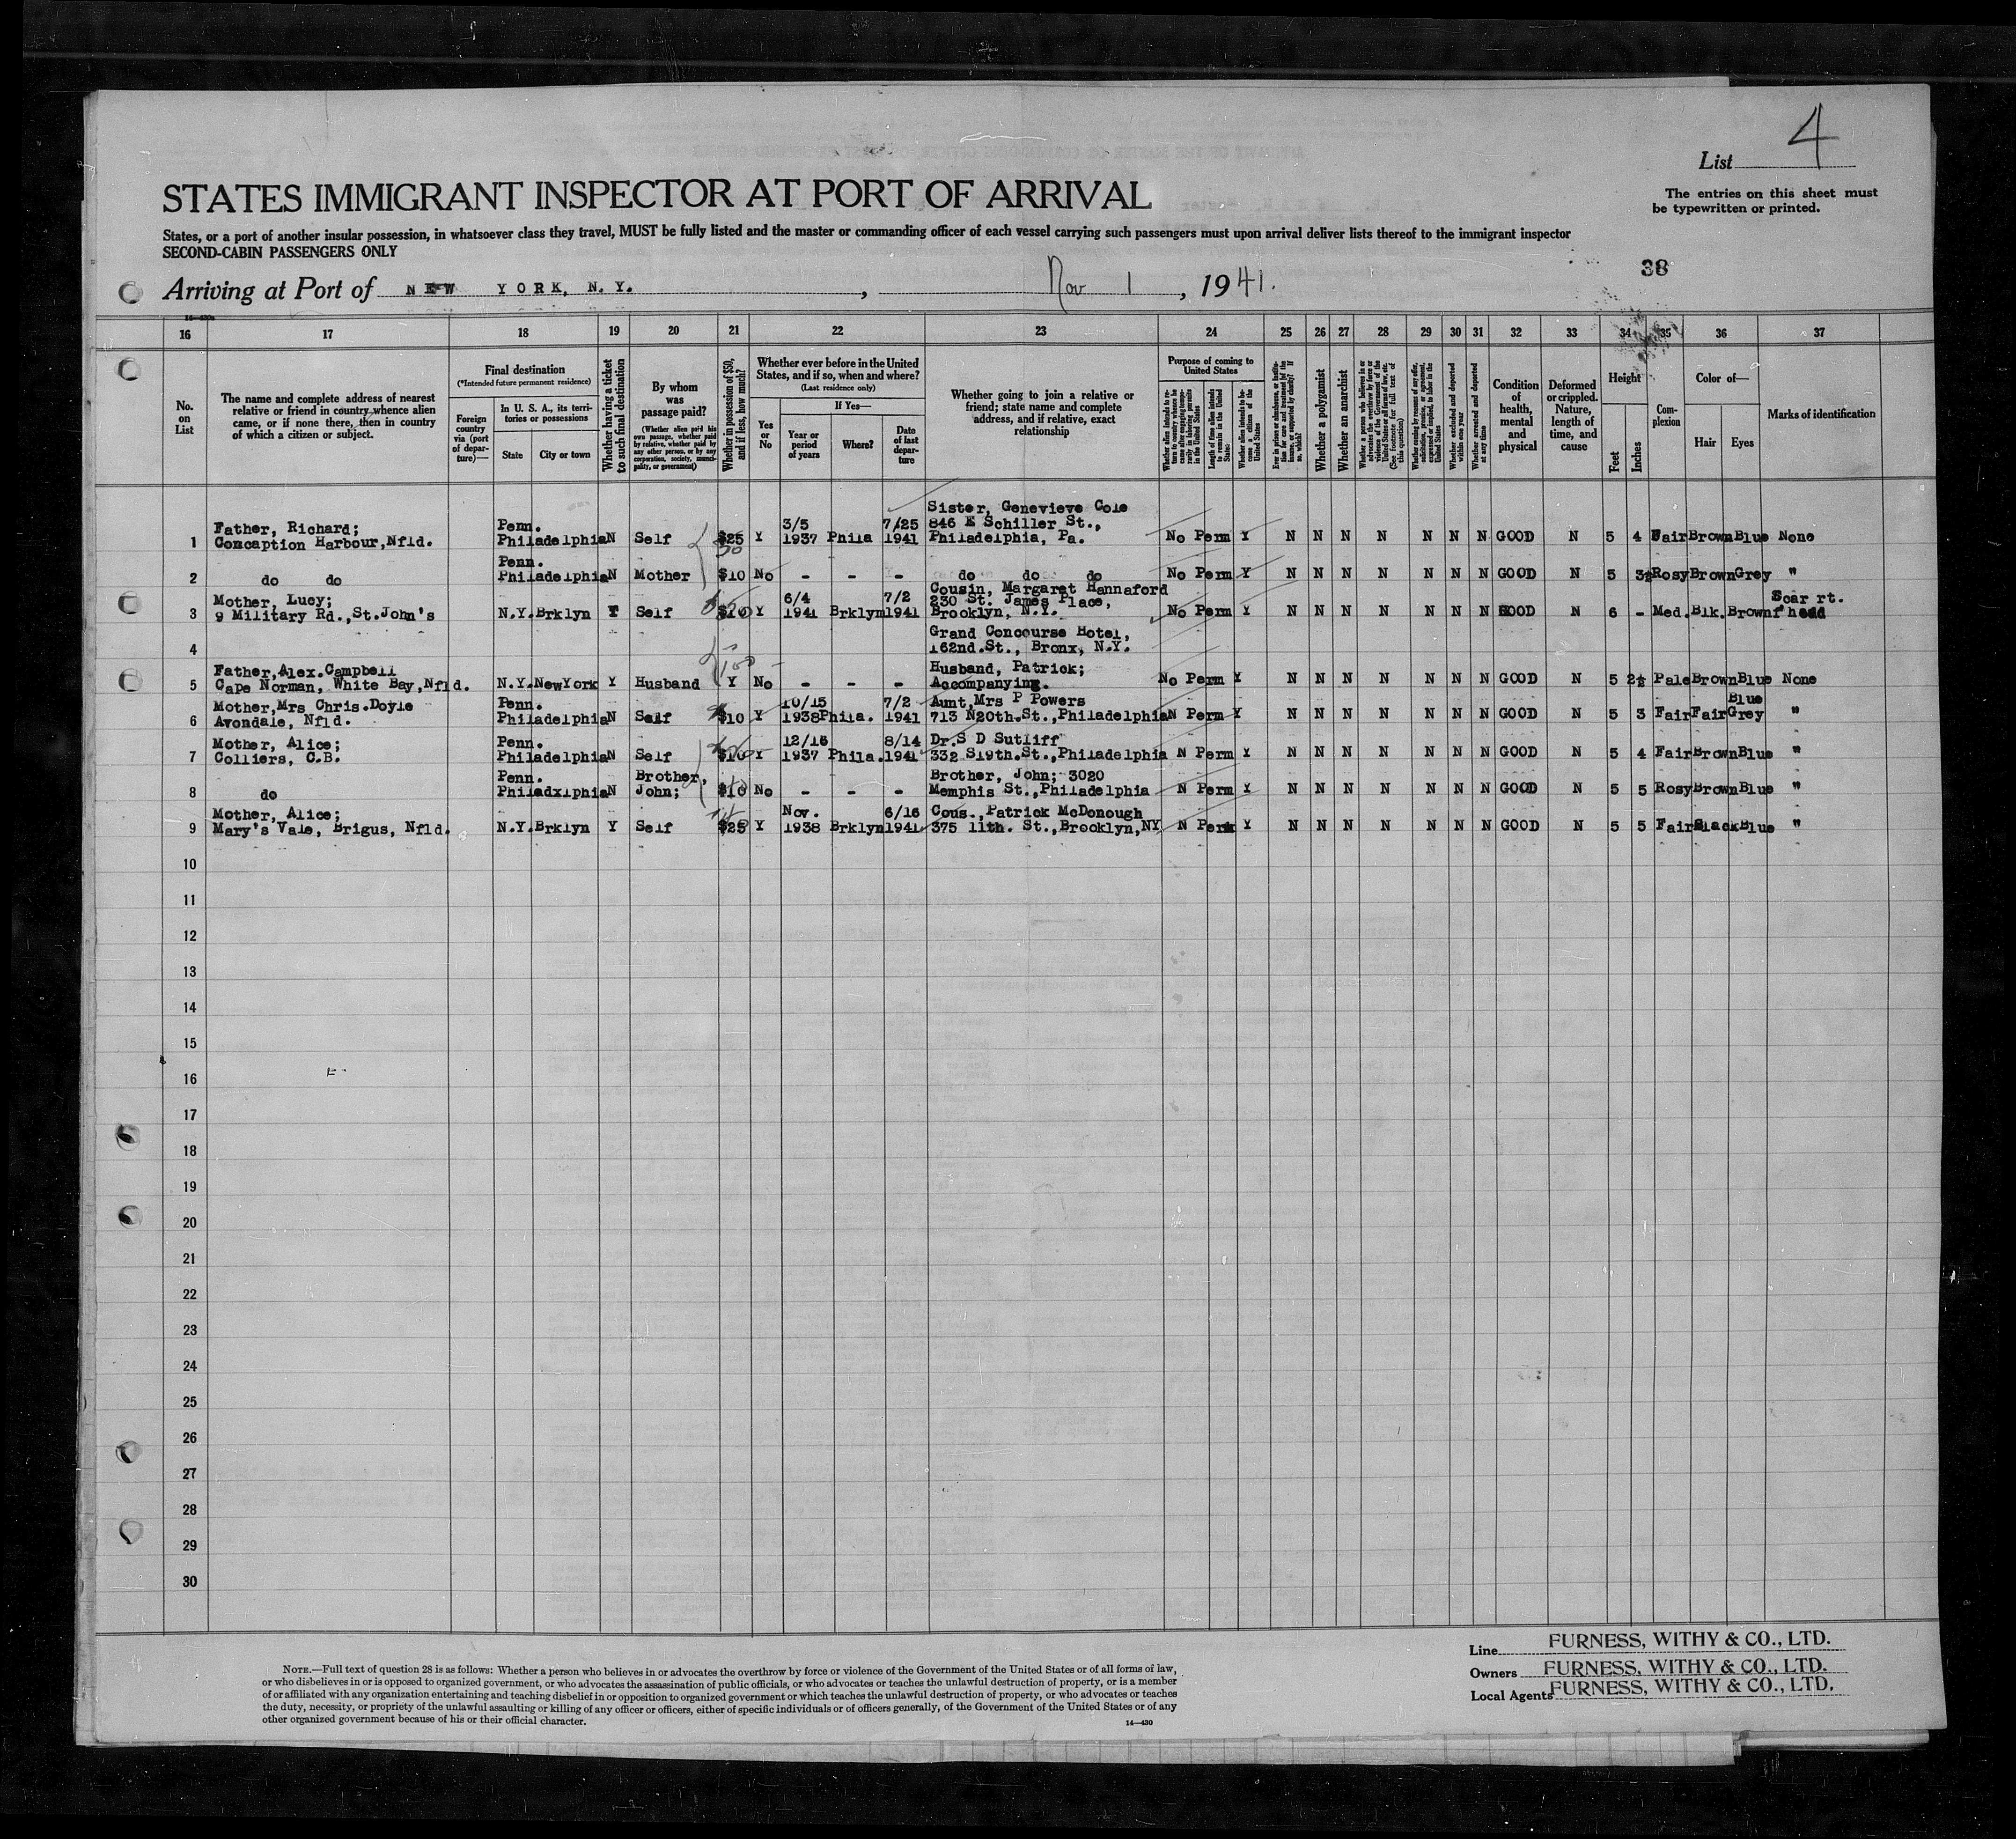 4
List
STATES IMMIGRANT INSPECTOR AT PORT OF ARRIVAL
The entries on this sheet must
be typewritten or printed.
States, or a port of another insular possession, in whatsoever class they travel, MUST be fully listed and the master or commanding officer of each vessel carrying such passengers must upon arrival deliver lists thereof to the immigrant inspector
SECOND-CABIN PASSENGERS ONLY
38
Arriving at Port of NEW YORK, N.Y. , Nov 1 , 1941.
16 17 18 19 20 21 22 23 24 25 26 27 28 29 30 31 32 33 34 35 36 37
No. on List
The name and complete address of nearest relative or friend in country whence alien came, or if none there, then in country of which a citizen or subject.
Final destination
(*Intended future permanent residence)
Foreign country via (port of departure)—
In U. S. A., its territories or possessions
State City or town
Whether having a ticket to such final destination
By whom was passage paid?
(Whether alien paid his own passage, whether paid by relative, whether paid by any other person, or by any corporation, society, municipality, or government)
Whether in possession of $50, and if less, how much?
Whether ever before in the United States, and if so, when and where?
(Last residence only)
Yes or No
If Yes—
Year or period of years
Where?
Date of last departure
Whether going to join a relative or friend; state name and complete address, and if relative, exact relationship
Purpose of coming to United States
Whether alien intends to return to country whence he came after engaging temporarily in laboring pursuits in the United States
Length of time alien intends to remain in the United States
Whether alien intends to become a citizen of the United States
Whether a polygamist
Whether an anarchist
(See footnote for full text of this question)
Whether excluded and deported within one year
Whether arrested and deported at any time
Condition of health, mental and physical
Deformed or crippled. Nature, length of time, and cause
Height
Feet Inches
Complexion
Color of—
Hair Eyes
Marks of identification
Father, Richard; Penn. 3/5 7/25 Sister, Genevieve Cole
846 E Schiller St.,
1 Concaption Harbour,Nfld. Philadelphia N Self $25 Y 1937 Phila 1941 Philadelphia, Pa. No Perm Y N N N N N N N GOOD N 5 4 Fair Brown Blue None
Penn.
2 do do Philadelphia N Mother $10 No - - - do do do No Perm Y N N N N N N N GOOD N 5 3½ Rosy Brown Grey "
Mother, Lucy; 6/4 7/2 Cousin, Margaret Hannaford
230 St. James Place, Scar rt.
3 9 Military Rd.,St.John's N.Y. Brklyn Self Y 1941 Brklyn 1941 Brooklyn, N.Y. No Perm Y N N N N N N N GOOD N 6 - Med. Blk. Brown f'head
4 Grand Concourse Hotel,
162nd.St., Bronx, N.Y.
Father,Alex.Campbell 100 Husband, Patrick;
5 Cape Norman, White Bay,Nfld. N.Y. NewYork Y Husband Y No - - - Accompanying. No Perm Y N N N N N N N GOOD N 5 2½ Pale Brown Blue None
Mother,Mrs Chris.Doyle Penn. 10/15 7/2 Aunt,Mrs P Powers Blue
6 Avondale, Nfld. Philadelphia N Self $10 Y 1938 Phila. 1941 713 N20th.St.,Philadelphia N Perm Y N N N N N N N GOOD N 5 3 Fair Fair Grey "
Mother, Alice; Penn. 12/16 8/14 Dr.S D Sutliff
7 Colliers, C.B. Philadelphia N Self $10 Y 1937 Phila. 1941 332 S19th.St.,Philadelphia N Perm Y N N N N N N N GOOD N 5 4 Fair Brown Blue "
Penn. Brother, Brother, John; 3020
8 do Philadxlphia N John; $10 No - - - Memphis St.,Philadelphia N Perm Y N N N N N N N GOOD N 5 5 Rosy Brown Blue "
Mother, Alice; Nov. 6/16 Cous.,Patrick McDonough
9 Mary's Vale, Brigus, Nfld. N.Y. Brklyn Y Self $25 Y 1938 Brklyn 1941 375 11th. St.,Brooklyn,NY N Perm Y N N N N N N N GOOD N 5 5 Fair Black Blue "
10
11
12
13
14
15
16
17
18
19
20
21
22
23
24
25
26
27
28
29
30
NOTE.—Full text of question 28 is as follows: Whether a person who believes in or advocates the overthrow by force or violence of the Government of the United States or of all forms of law,
or who disbelieves in or is opposed to organized government, or who advocates the assassination of public officials, or who advocates or teaches the unlawful destruction of property, or is a member
of or affiliated with any organization entertaining and teaching disbelief in or opposition to organized government or which teaches the unlawful destruction of property, or who advocates or teaches
the duty, necessity, or propriety of the unlawful assaulting or killing of any officer or officers, either of specific individuals or of officers generally, of the Government of the United States or of any
other organized government because of his or their official character.
14—430
Line FURNESS, WITHY & CO., LTD.
Owners FURNESS, WITHY & CO., LTD.
Local Agents FURNESS, WITHY & CO., LTD.